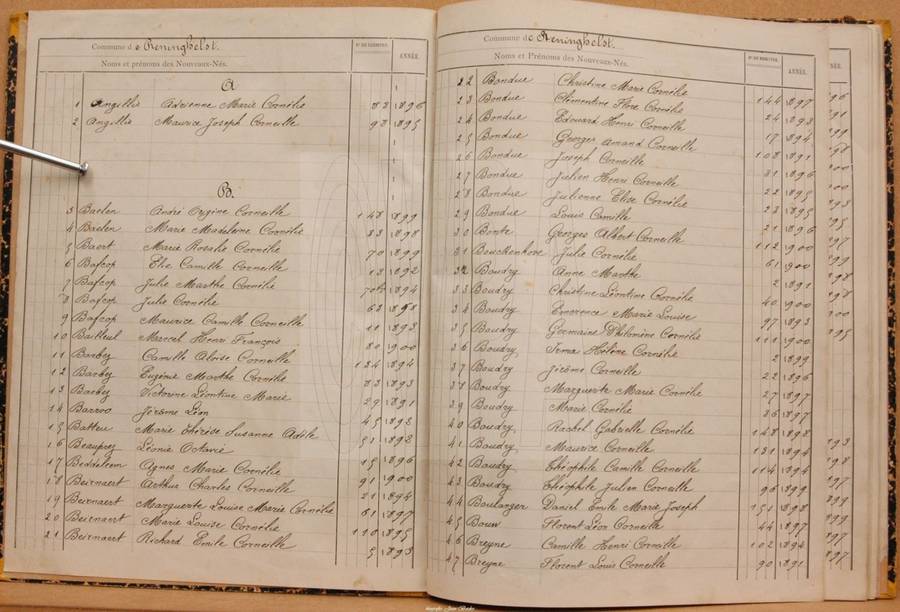 Commune de Reninghelst.
Noms et prénoms des Nouveaux-Nés. ANNÉE.
A
1 Angillis Adrienne Marie Cornélie 83 1896
2 Angillis Maurice Joseph Corneille 93 1895
B.
3 Baelen André Orgine Corneille 148 1899
4 Baelen Marie Madeleine Cornélie 83 1898
5 Baert Marie Rosalie Cornélie 70 1899
6 Bafcop Elie Camille Corneille 13 1892
7 Bafcop Julie Marthe Cornélie 1894
8 Bafcop Julie Cornélie 63
9 Bafcop Maurice Camille Corneille 11 1893
10 Bailleul Marcel Henri François 80 1900
11 Barbez Camille Aloïse Corneille 134 1894
12 Barbez Eugénie Marthe Cornélie 83 1893
13 Barbez Victorine Léontine Marie 29 1891
14 Barroo Jérôme Léon 45 1893
15 Batteu Marie Thérèse Susanne Adèle 51 1893
16 Beauprez Léonie Octavie 15 1896
17 Beddeleem Agnes Marie Cornélie 91 1900
18 Beirnaert Arthur Charles Corneille 21 1894
19 Beirnaert Marguerite Louise Marie Cornélie 61 1897
20 Beirnaert Marie Louise Cornélie 110 1895
21 Beirnaert Richard Emile Corneille 5 1893
Commune de Reninghelst.
Noms et Prénoms des Nouveaux-Nés. ANNÉE.
22 Bondue Christine Marie Cornélie 144 1897
23 Bondue Clémentine Flore Cornélie 24 1893
24 Bondue Edouard Henri Corneille 17 1894
25 Bondue Georges Amand Corneille 108 1891
26 Bondue Joseph Corneille 31 1896
27 Bondue Julien Henri Corneille 22 1895
28 Bondue Julienne Elise Cornélie 23 1895
29 Bondue Louis Camille 21 1896
30 Bonte Georges Albert Corneille 112 1900
31 Bouckenhove Julie Cornélie 61 1900
32 Boudry Anne Marthe 2 1891
33 Boudry Christine Léontine Cornélie 40 1900
34 Boudry Emerence Marie Louise 97 1893
35 Boudry Germaine Philomène Cornélie 111 1900
36 Boudry Irma Hélène Cornélie 2 1899
37 Boudry Jérôme Corneille 22 1896
38 Boudry Marguerite Marie Cornélie 27 1897
39 Boudry Marie Cornélie 36 1897
40 Boudry Rachel Gabrielle Cornélie 148 1898
41 Boudry Maurice Corneille 131 1894
42 Boudry Théophile Camille Corneille 114 1894
43 Boudry Théophile Julien Corneille 96 1899
44 Boulanger Daniel Emile Marie Joseph 151 1898
45 Bouw Florent Léon Corneille 44 1897
46 Breyne Camille Henri Corneille 102 1894
47 Breyne Florent Louis Corneille 90 1891
ANNÉE.